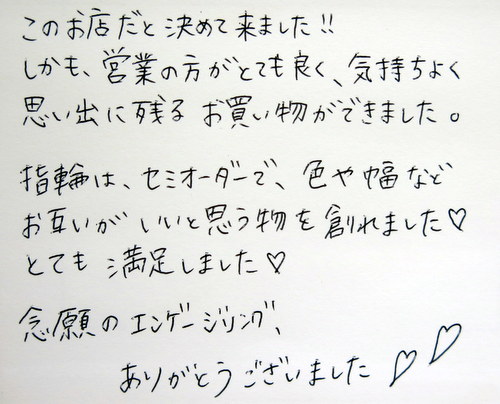 このお店だと決めて来ました!!
しかも、営業の方がとても良く、気持ちよく
思い出に残るお買い物ができました。
指輪は、セミオーダーで、色や幅など
お互いがいいと思う物を創れました♡
とても満足しました♡
念願のエンゲージリング、
ありがとうございました♡♡